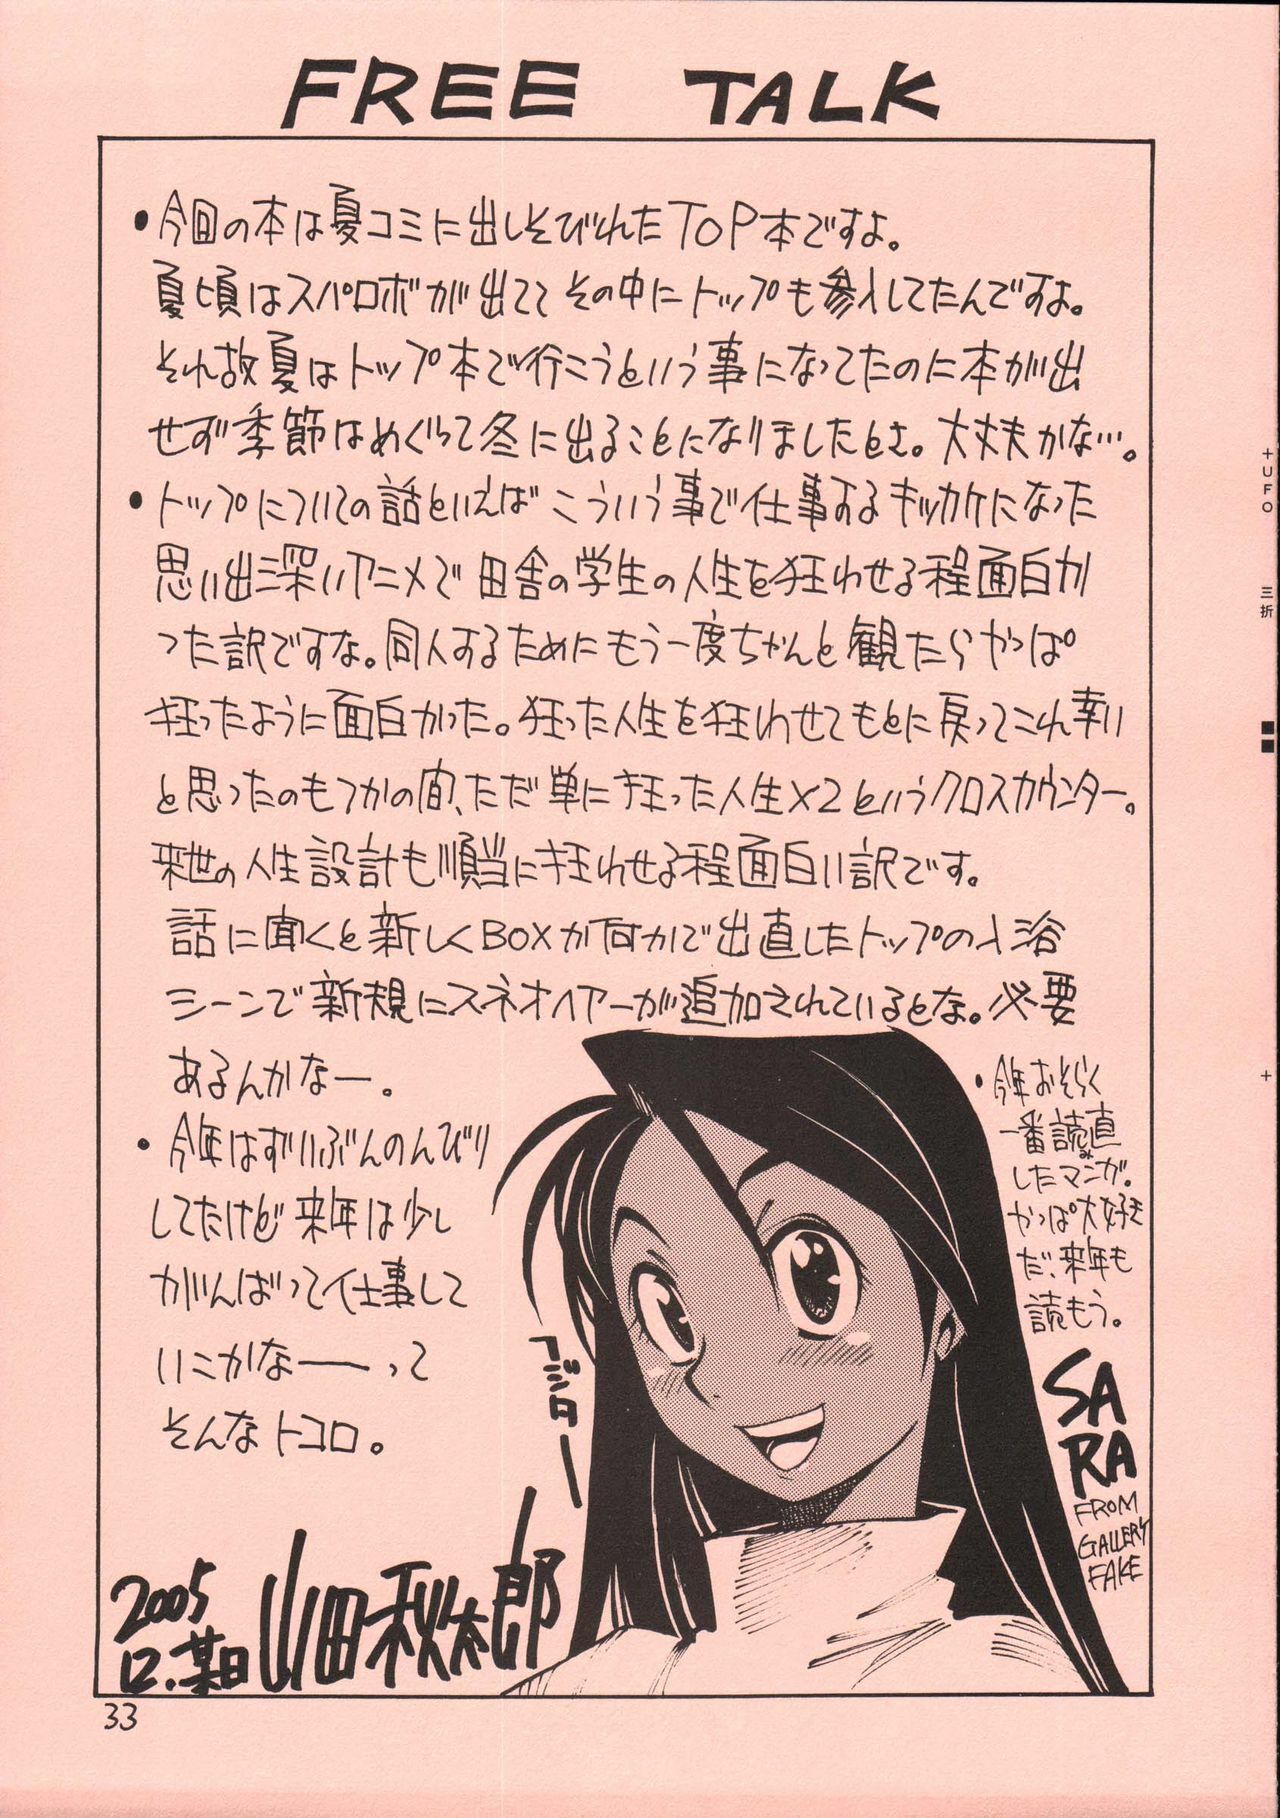 FREE TALK
・今回の本は夏コミに出しそびれたTOP本ですよ。
夏頃はスパロボが出ててその中にトップも参入してたんですよ。
それ故夏はトップ本で行こうという事になってたのに本が出
せず季節はめぐって冬に出ることになりましたとさ。大丈夫かな…。
・トップについての話といえばこういう事で仕事するキッカケになった
思い出深いアニメで田舎の学生の人生を狂わせる程面白か
った訳ですな。同人するためにもう一度ちゃんと観たらやっぱ
狂ったように面白かった。狂った人生を狂わせてもとに戻ってこれ幸い
と思ったのもつかの間、ただ単に狂った人生×2というクロスカウンター。
来世の人生設計も順当に狂わせる程面白い訳です。
話に聞くと新しくBOXか何かで出直したトップの入浴
シーンで新規にスネオヘアーが追加されているとな。必要
あるんかなー。
・今年はずいぶんのんびり
してたけど来年は少し
がんばって仕事して
いこかなーって
そんなトコロ。
・今年おそらく
一番読み直
したマンガ。
やっぱ大好き
だ、来年も
読もう。
フジター
SA
RA
FROM
GALLERY
FAKE
2005
12.某日
山田秋太郎
33
+UFO 三折
+